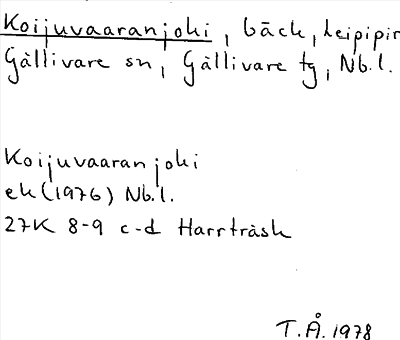 Koijuvaaranjoki, bäck, Leipipir
Gällivare sn, Gällivare tg, Nb.l.
Koijuvaaranjoki
ek (1976) Nb.l.
27K 8-9 c-d Harrträsk
T.Å. 1978